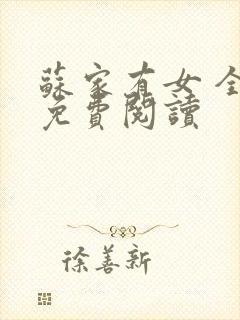 蘇家有女 全
免費閱讀
徐善新